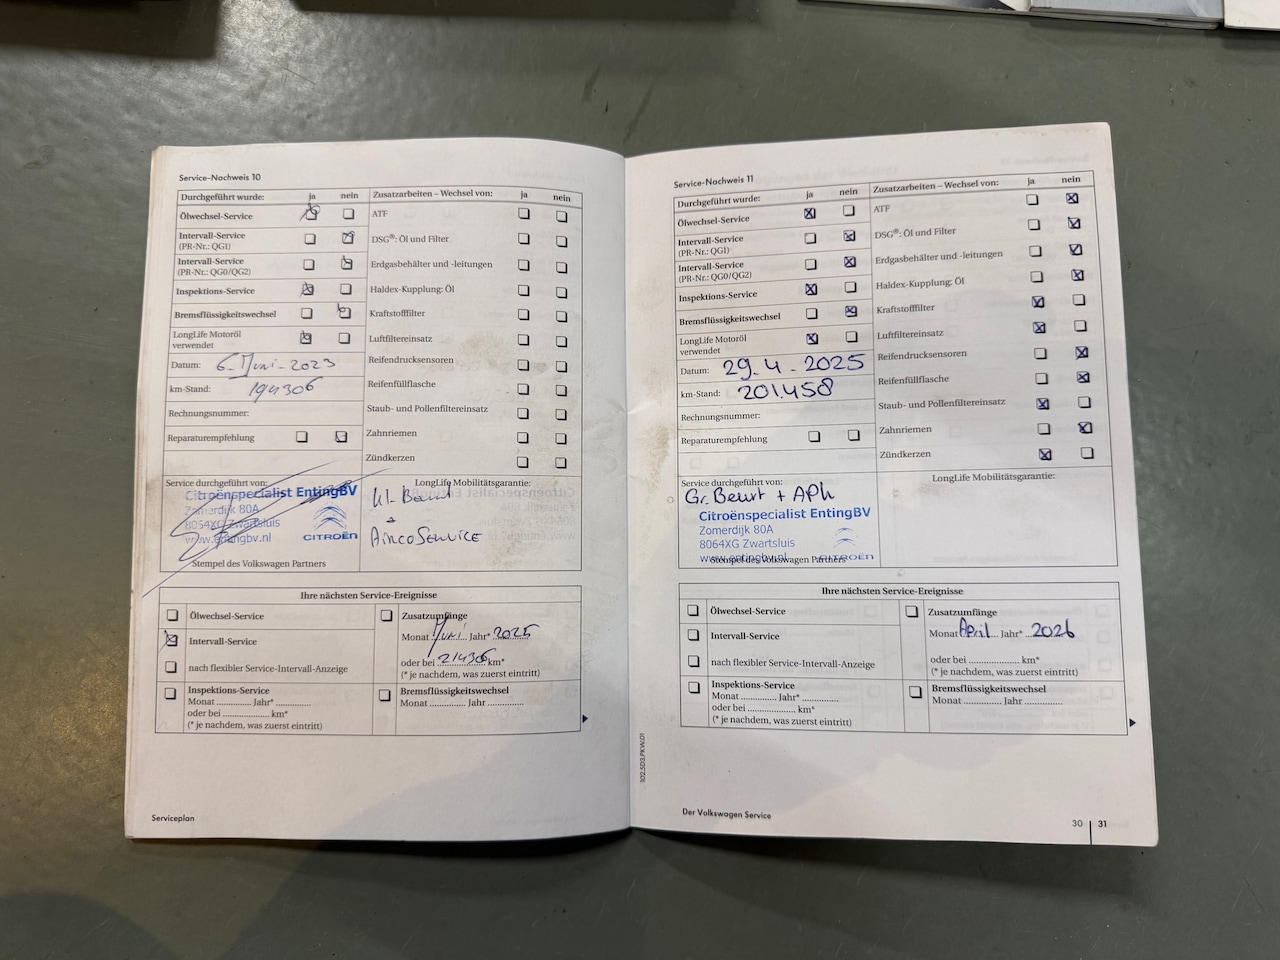 Service-Nachweis 10
Durchgeführt wurde: ja nein
Ölwechsel-Service
Intervall-Service
(PR-Nr.: QG1)
Intervall-Service
(PR-Nr.: QG0/QG2)
Inspektions-Service
Bremsflüssigkeitswechsel
LongLife Motoröl
verwendet
Datum: 6-Juni-2023
km-Stand: 194306
Rechnungsnummer:
Reparaturempfehlung
Zusatzarbeiten – Wechsel von: ja nein
ATF
DSG®: Öl und Filter
Erdgasbehälter und -leitungen
Haldex-Kupplung: Öl
Kraftstofffilter
Luftfiltereinsatz
Reifendrucksensoren
Reifenfüllflasche
Staub- und Pollenfiltereinsatz
Zahnriemen
Zündkerzen
Service durchgeführt von:
Citroënspecialist EntingBV
Zomerdijk 80A
8064XG Zwartsluis
www.entingbv.nl
CITROËN
Stempel des Volkswagen Partners
LongLife Mobilitätsgarantie:
Kl. Beurt
AircoService
Ihre nächsten Service-Ereignisse
Ölwechsel-Service
Intervall-Service
nach flexibler Service-Intervall-Anzeige
Inspektions-Service
Monat ............ Jahr* ..................
oder bei ..................... km*
(* je nachdem, was zuerst eintritt)
Zusatzumfänge
Monat Juni Jahr* 2025
oder bei 214306 km*
(* je nachdem, was zuerst eintritt)
Bremsflüssigkeitswechsel
Monat ............ Jahr ............
Serviceplan
Service-Nachweis 11
Durchgeführt wurde: ja nein
Ölwechsel-Service
Intervall-Service
(PR-Nr.: QG1)
Intervall-Service
(PR-Nr.: QG0/QG2)
Inspektions-Service
Bremsflüssigkeitswechsel
LongLife Motoröl
verwendet
Datum: 29-4-2025
km-Stand: 201.458
Rechnungsnummer:
Reparaturempfehlung
Zusatzarbeiten – Wechsel von: ja nein
ATF
DSG®: Öl und Filter
Erdgasbehälter und -leitungen
Haldex-Kupplung: Öl
Kraftstofffilter
Luftfiltereinsatz
Reifendrucksensoren
Reifenfüllflasche
Staub- und Pollenfiltereinsatz
Zahnriemen
Zündkerzen
Service durchgeführt von:
Gr. Beurt + APK
Citroënspecialist EntingBV
Zomerdijk 80A
8064XG Zwartsluis
www.entingbv.nl
CITROËN
Stempel des Volkswagen Partners
LongLife Mobilitätsgarantie:
Ihre nächsten Service-Ereignisse
Ölwechsel-Service
Intervall-Service
nach flexibler Service-Intervall-Anzeige
Inspektions-Service
Monat ............ Jahr* ..................
oder bei ..................... km*
(* je nachdem, was zuerst eintritt)
Zusatzumfänge
Monat April Jahr* 2026
oder bei ..................... km*
(* je nachdem, was zuerst eintritt)
Bremsflüssigkeitswechsel
Monat ............ Jahr ............
102.5D3.PKW.01
Der Volkswagen Service
30 31